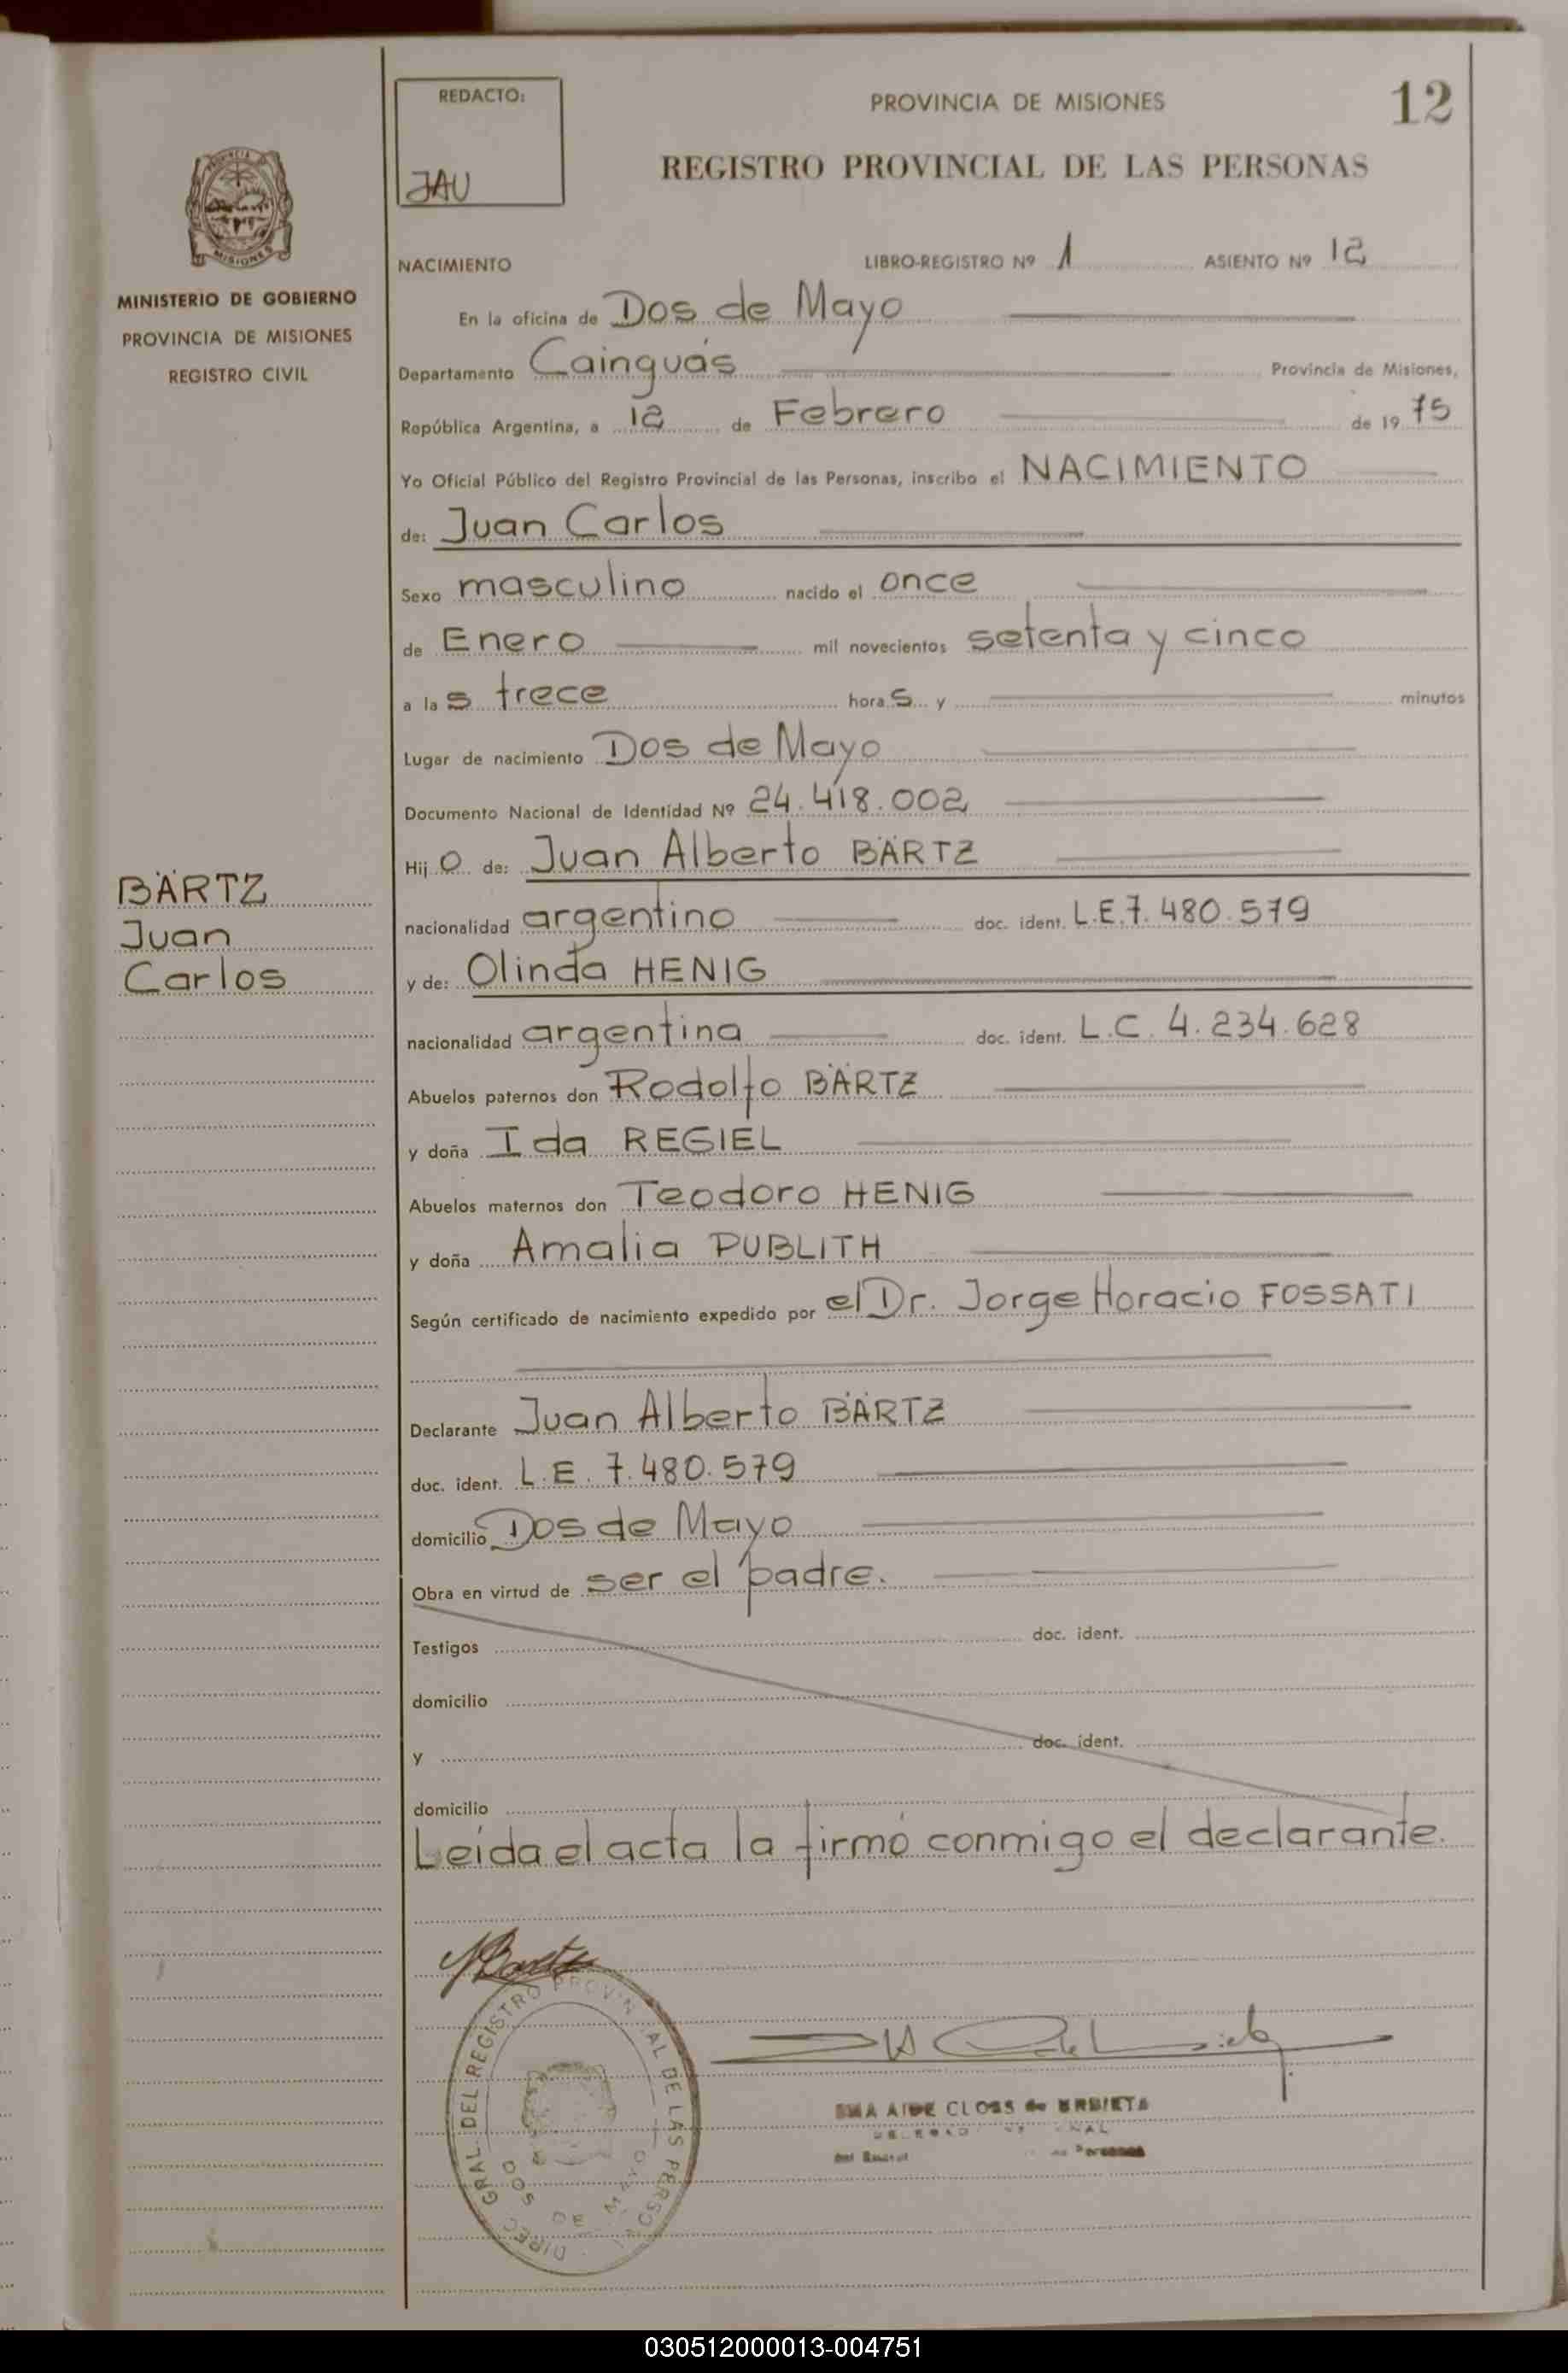 REDACTO:
JAU
PROVINCIA DE MISIONES
12
REGISTRO PROVINCIAL DE LAS PERSONAS
MISIONES
MINISTERIO DE GOBIERNO
PROVINCIA DE MISIONES
REGISTRO CIVIL
NACIMIENTO LIBRO-REGISTRO Nº 1 ASIENTO Nº 12
En la oficina de Dos de Mayo
Departamento Cainguás Provincia de Misiones,
República Argentina, a 12 de Febrero de 19 75
Yo Oficial Público del Registro Provincial de las Personas, inscribo el NACIMIENTO
de: Juan Carlos
Sexo masculino nacido el once
de Enero mil novecientos setenta y cinco
a las trece horas y minutos
Lugar de nacimiento Dos de Mayo
Documento Nacional de Identidad Nº 24.418.002
Hijo de: Juan Alberto BÄRTZ
BÄRTZ
Juan
Carlos
nacionalidad argentino doc. ident. L.E.7.480.579
y de: Olinda HENIG
nacionalidad argentina doc. ident. L.C. 4.234.628
Abuelos paternos don Rodolfo BÄRTZ
y doña Ida REGIEL
Abuelos maternos don Teodoro HENIG
y doña Amalia PUBLITH
Según certificado de nacimiento expedido por el Dr. Jorge Horacio FOSSATI
Declarante Juan Alberto BÄRTZ
doc. ident. L.E. 7.480.579
domicilio Dos de Mayo
Obra en virtud de ser el padre.
Testigos doc. ident.
domicilio
y doc. ident.
domicilio
Leída el acta la firmó conmigo el declarante.
DIREC. GRAL. DEL REGISTRO PROVINCIAL DE LAS PERSON
DOS DE MAYO
AIDE CLOSS de URBIETA
Personas
030512000013-004751